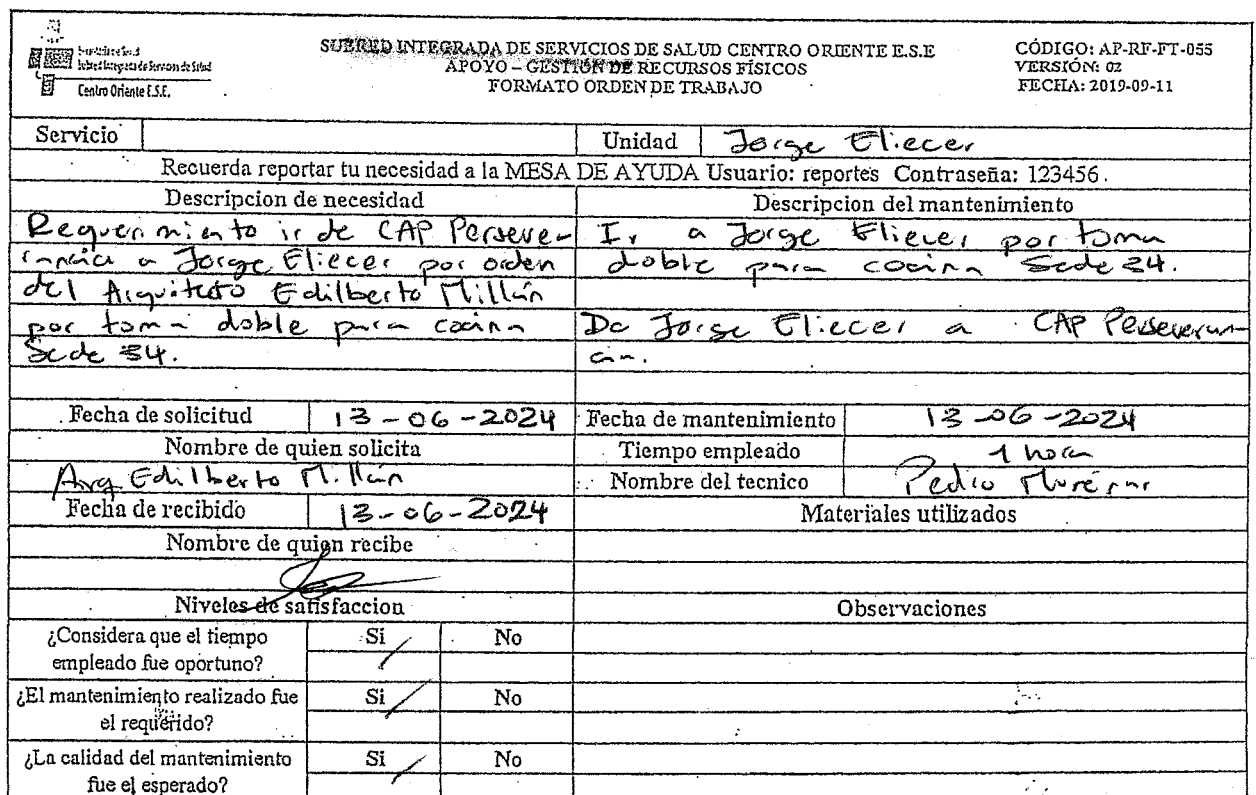 Centro Oriente E.S.E.
SUBRED INTEGRADA DE SERVICIOS DE SALUD CENTRO ORIENTE E.S.E
APOYO – GESTIÓN DE RECURSOS FÍSICOS
FORMATO ORDEN DE TRABAJO
CÓDIGO: AP-RF-FT-055
VERSIÓN: 02
FECHA: 2019-09-11
Servicio
Unidad Jorge Eliecer
Recuerda reportar tu necesidad a la MESA DE AYUDA Usuario: reportes Contraseña: 123456.
Descripcion de necesidad
Requerimiento ir de CAP Perseve-
rancia a Jorge Eliecer por orden
del Arquitecto Edilberto Millán
por toma doble para cocina
Sede 34.
Descripcion del mantenimiento
Ir a Jorge Eliecer por toma
doble para cocina Sede 34.
De Jorge Eliecer a CAP Perseveran-
cia.
Fecha de solicitud 13-06-2024
Fecha de mantenimiento 13-06-2024
Nombre de quien solicita
Arq. Edilberto Millán
Tiempo empleado 1 hora
Nombre del tecnico Pedro
Fecha de recibido 13-06-2024
Materiales utilizados
Nombre de quien recibe
Niveles de satisfaccion
Observaciones
¿Considera que el tiempo
empleado fue oportuno?
Si No
¿El mantenimiento realizado fue
el requerido?
Si No
¿La calidad del mantenimiento
fue el esperado?
Si No